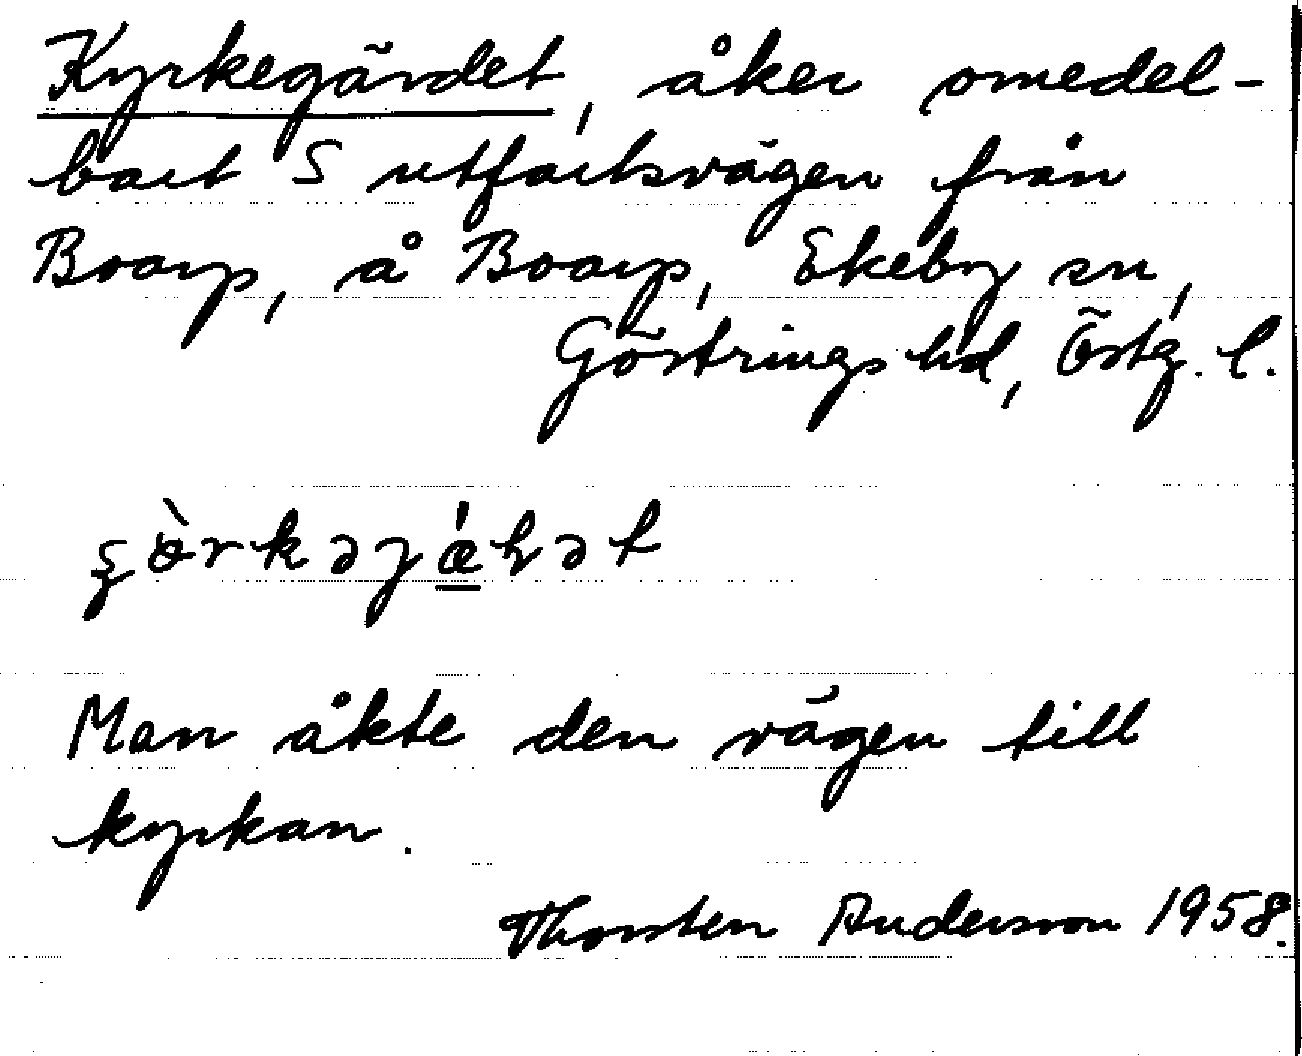 Kyrkegärdet, åker omedel-
bart S utfartsvägen från
Boarp, å Boarp, Ekeby sn,
Göstrings hd, Östg. l.
Man åkte den vägen till
kyrkan.
Thorsten Andersson 1958.